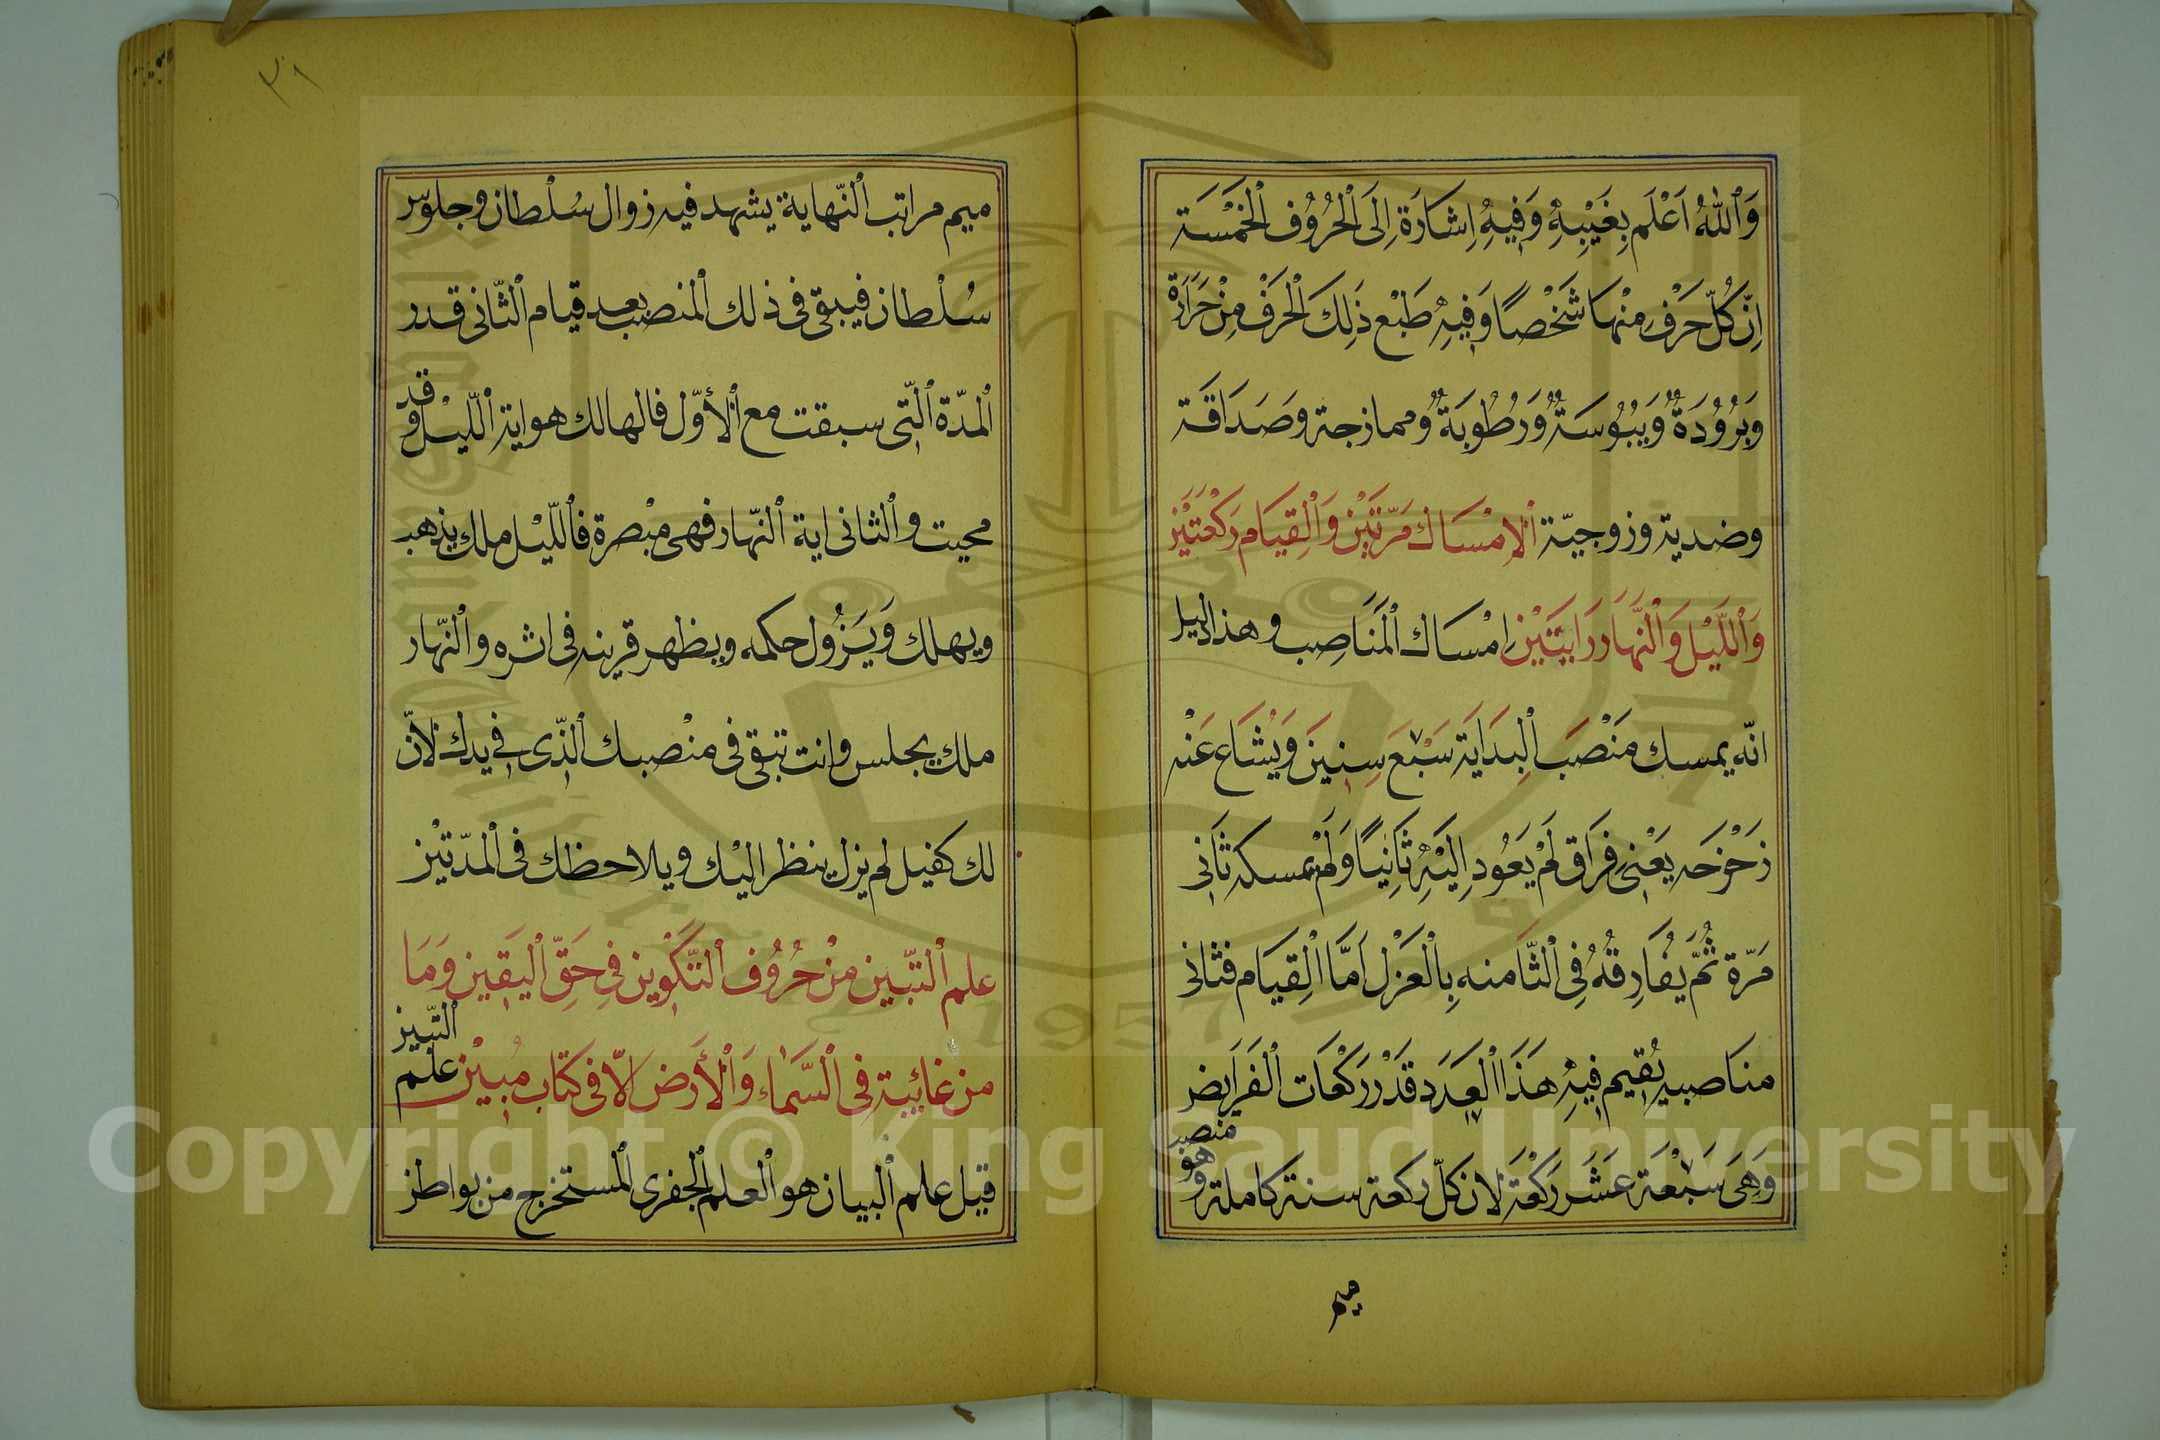 وَٱللهُ اَعْلَم بِغَيْبِهِ وَفِيهِ اِشَارَة اِلَى ٱلْحُرُوُف ٱلْخَمْسَة
اِنّ كُلّ حَرْف مِنْهَا شَخْصًا وَفِيهِ طَبْع ذَلِكَ ٱلْحَرَفْ مِنْ حَرَارَة
وَبُرُوُدَةٌ وَيَبُوُسَةٌ وَرُطُوبَةٌ وممازجة وصَدَاقَة
وضدية وزوجيّة ٱلاِمْسَاك مَرّتَيْن وَٱلْقِيَام رَكْعَتَيْن
وَٱللَّيْل وَٱلْنَّهَار رَايَتَيْن اِمْسَاك ٱلْمَنَاصِب وهذا دليل
انّه يمسك مَنْصَب ٱلْبِدَايَة سَبْعَ سِنِينَ وَيُشَاع عَنْه
زَحْزحَه يَعْنِى فِرَاق لَمْ يَعُود اِلَيْهِ ثَانِيًا وَلَمْ يمسكه ثَانِى
مَرّة ثُمَّ يُفَارِقُهُ فِى ٱلْثّامنه بِٱلْعَزْل اَمَّا ٱلْقِيَام فثانى
مناصبه يُقِيم فِيهِ هَذَا ٱلْعَدَد قَدْر رَكْعَات ٱلْفَرَايض
١٧
وَهِىَ سَبْعَة عَشَر رَكْعَة لان كلّ ركعة سنة كاملة وهو منصب
ميم
٣١
ميم مراتب ٱلنّهاية يشهد فيه زوال سُلْطان وجلوس
سُلْطان فيبقى فى ذلك ٱلمنصب بعد قيام ٱلثّانى قدر
ٱلمدّة ٱلّتى سبقت مع ٱلأوّل فالهالك هو اية ٱللّيْل وقد
محيت وٱلثانى اية ٱلنّهار فهى مبْصرة فٱللّيْل ملك يذهب
ويهلك وَيَزُول حكمه ويظهر قرينه فى اثره وٱلنّهار
ملك يجلس وانت تبقى فى منْصبك ٱلذّى فى يدك لأنّ
لك كفيل لم يزل ينظر اليْك ويلاحظك فى ٱلمدّتيْن
علم ٱلتبّين مِنْ حُرُوُف ٱلتَّكْوِين فِى حَقِّ ٱليَقِين وَمَا
من غائبة فى ٱلسَّمَاء وَٱلأَرض الاّ فى كتاب مُبِيْن علم ٱلتبّين
قيل علم ٱلبيان هو ٱلعلم ٱلجفرى ٱلمستخرج من بواطن
Copyright © King Saud University
1957